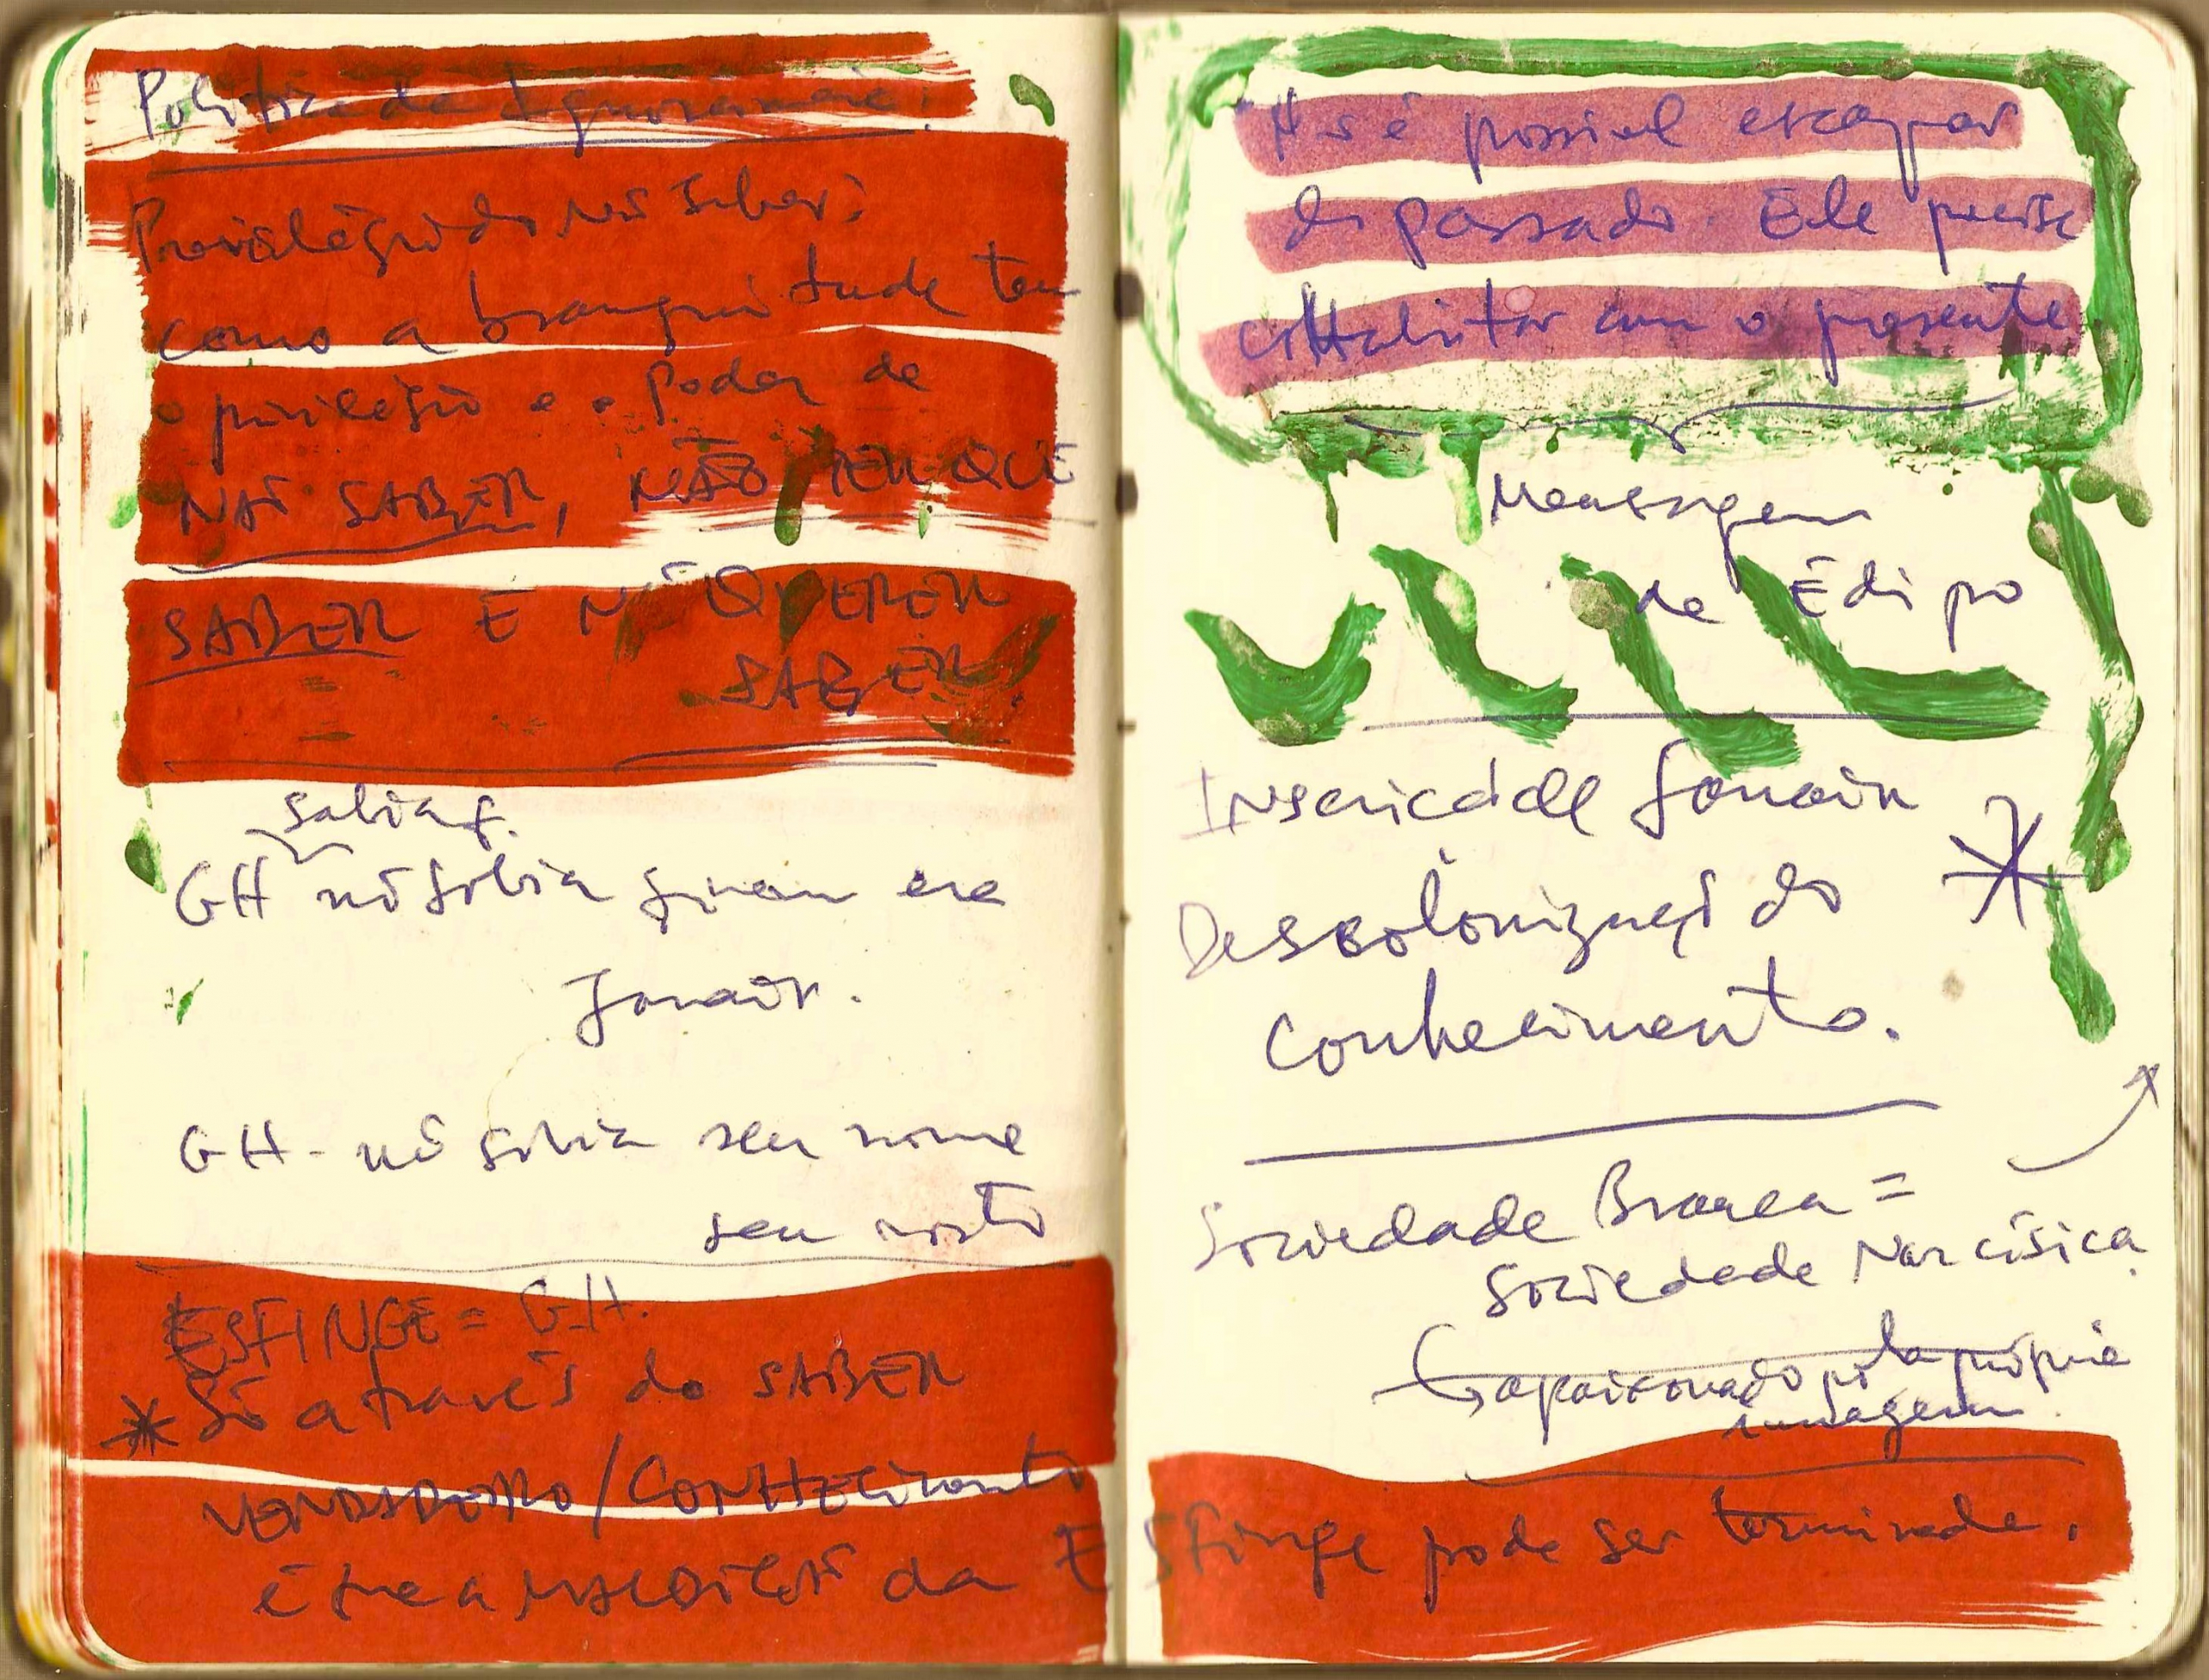 Politica da Ignorancia:
Privilégio do não saber:
como a branquitude tem
o privilégio e o Poder de
NÃO SABER, NÃO TEM QUE
SABER E Nº QUERER
SABER.
sabia q.
GH nõ sabia quem era
Janair.
GH - nõ sabia seu nome
seu rosto
ESFINGE = GH.
* Só através do SABER
VERDADEIRO/CONHECImento
é que a MALDIÇÃO da Esfinge pode ser terminada.
Ñ é possivel escapar
do passado. Ele precisa
coHabitar com o presente
Mensagem
de Édipo
Janair *
Descolonização do
conhecimento.
Sociedade Branca =
Sociedade Narcísica.
apaixonado pela própria
imagem.